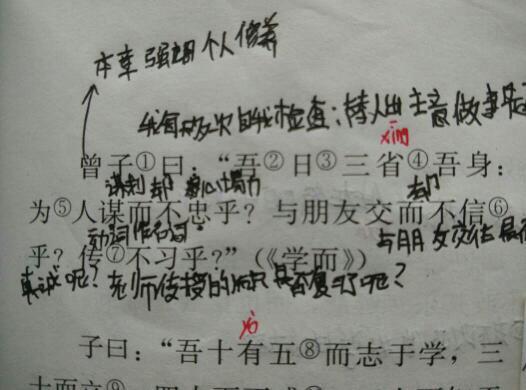 本章强调个人修养
我每日多次自我检查:替人出主意做事是
xǐng
曾子①曰:“吾②日③三省④吾身:
谋划 却 竭心尽力 却
为⑤人谋而不忠乎?与朋友交而不信⑥
动词作名词 与朋友交往是
乎?传⑦不习乎?”(《学而》)
真诚呢?老师传授的知识是否复习了呢?
yòu
子曰:“吾十有五⑧而志于学,三
十而立⑨